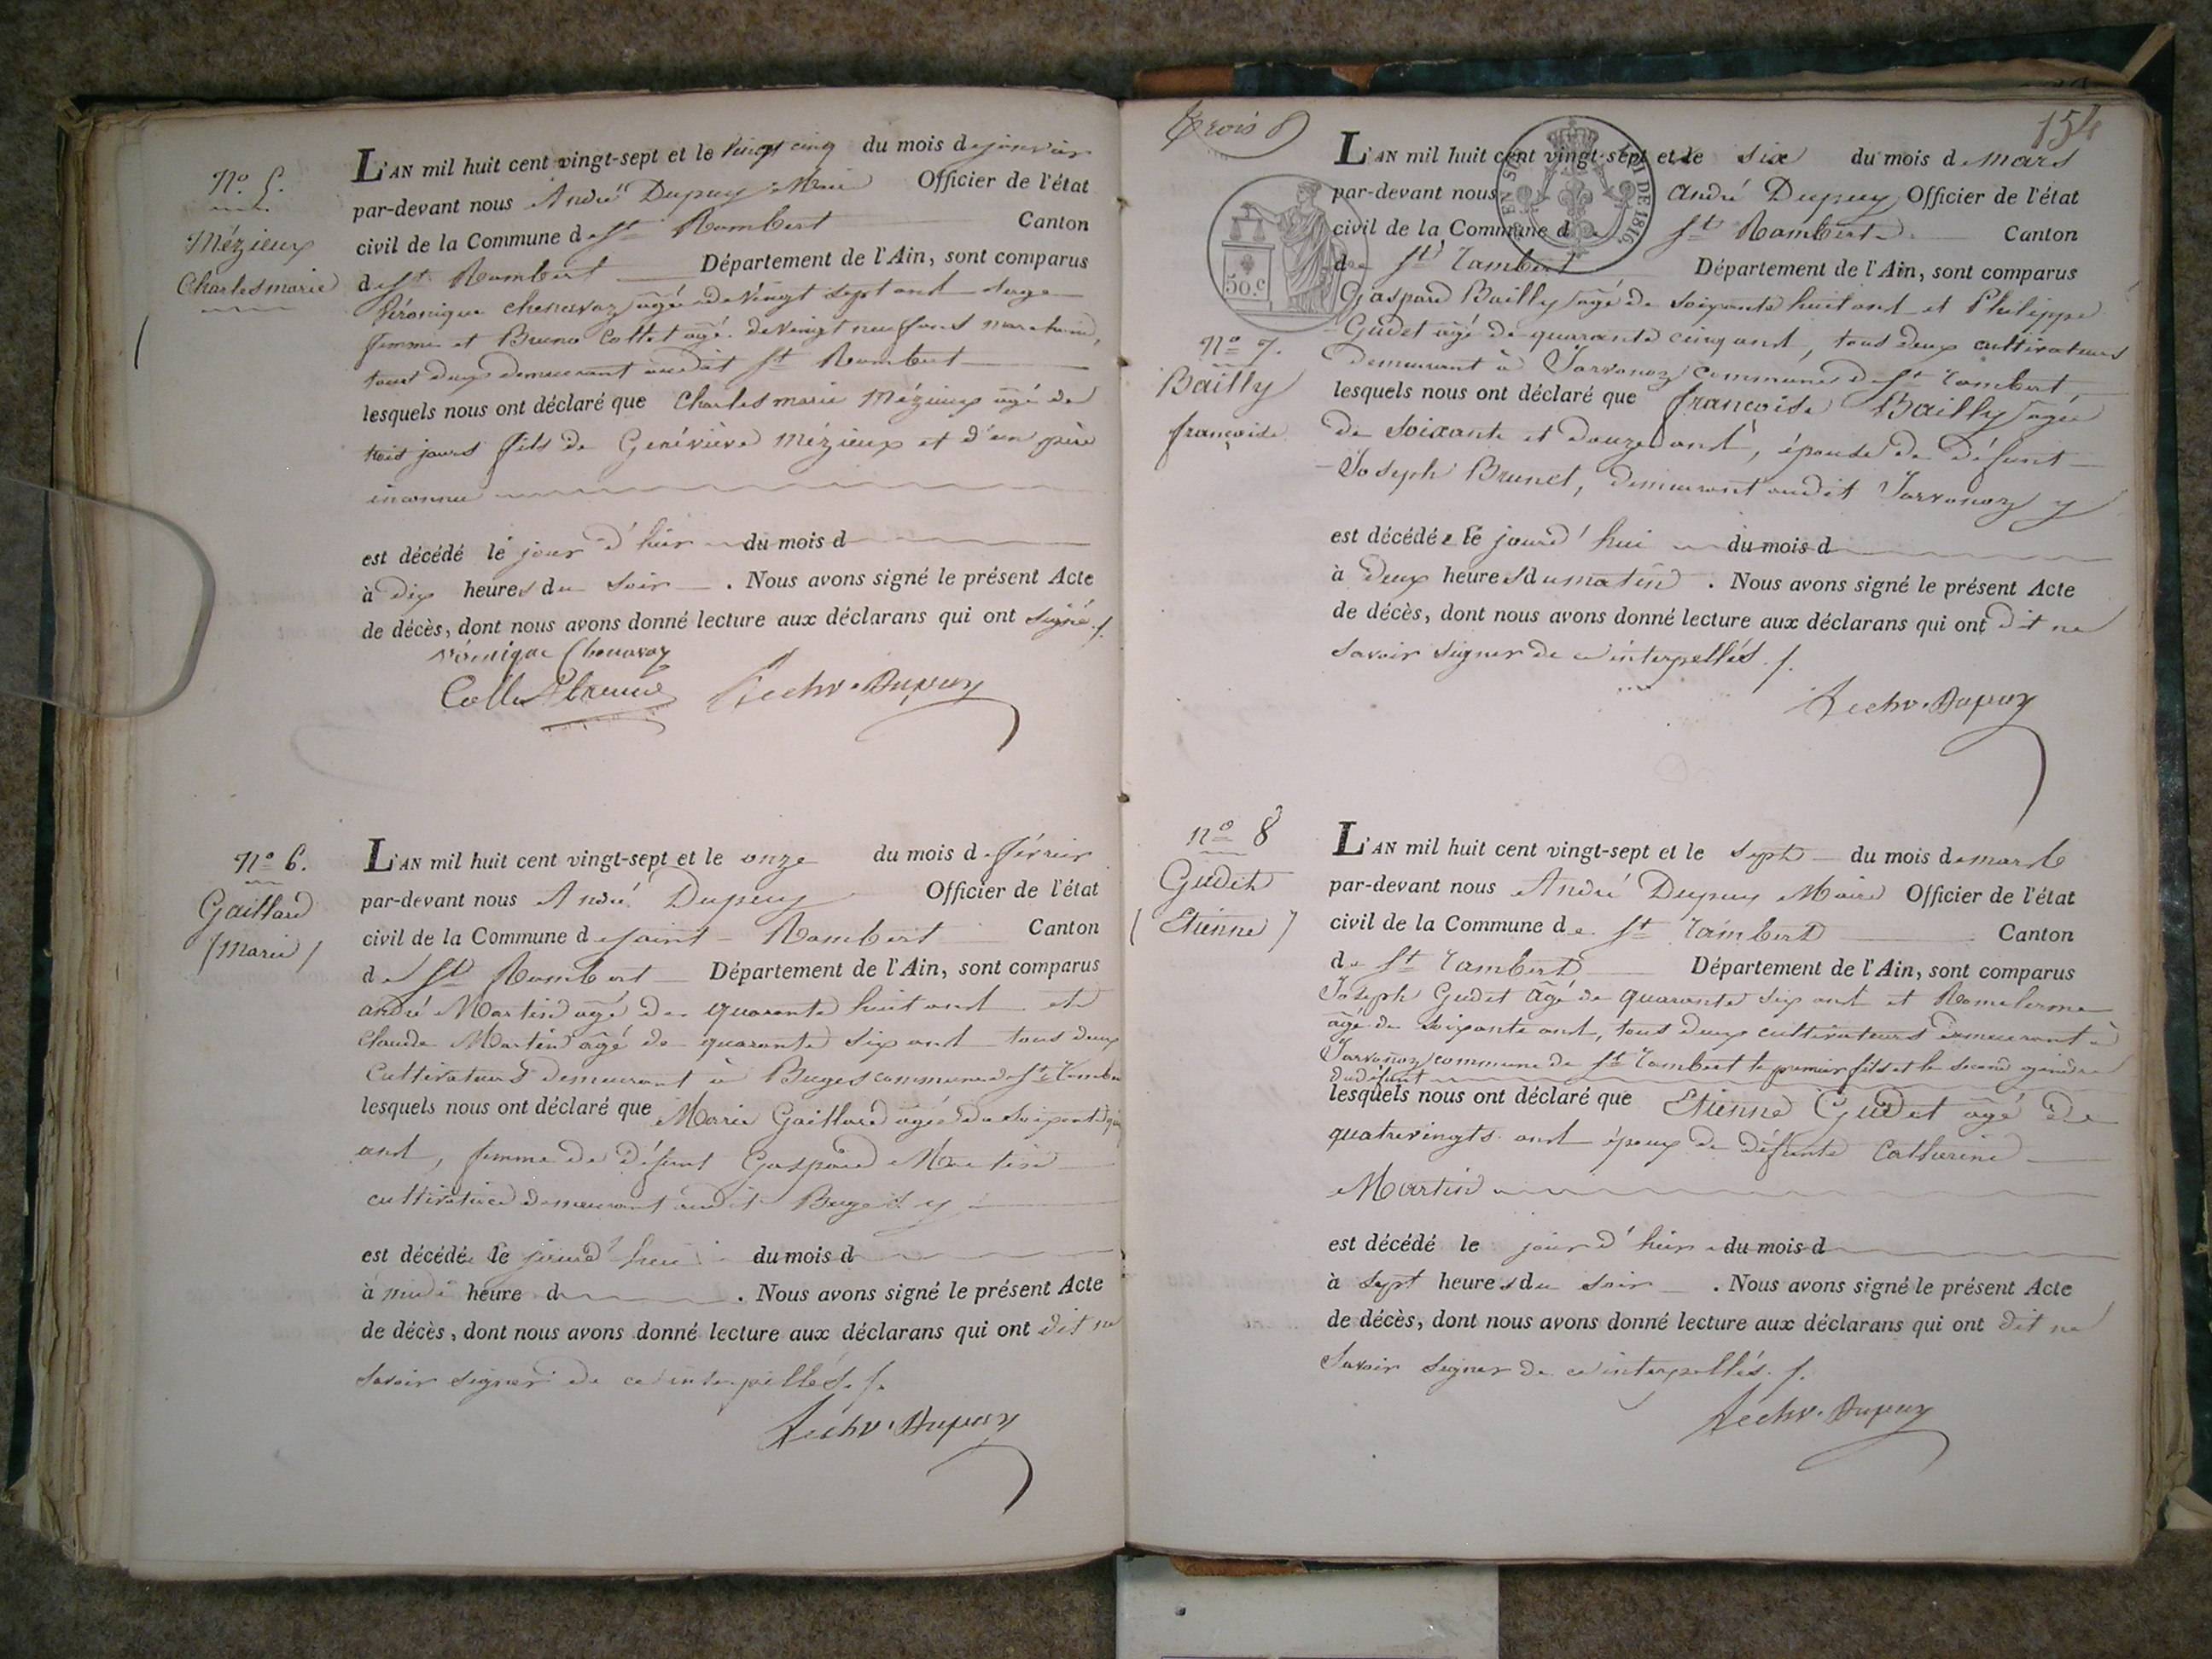 N.o 5.
Mézieux
Charles marie
L'AN mil huit cent vingt-sept et le vingt cinq du mois de janvier
par-devant nous André Dupuy Maire Officier de l'état
civil de la Commune de St Rambert Canton
de St Rambert Département de l'Ain, sont comparus
Véronique chenavaz agée de vingt sept ans sage
femme et Bruno Collet agé de vingt neuf ans marchand,
tous deux demeurant audit St Rambert
lesquels nous ont déclaré que Charles marie Mézieux agé de
trois jours fils de Geneviève Mézieux et d'un père
inconnu
est décédé le jour d'hier du mois d
à dix heures du soir . Nous avons signé le présent Acte
de décès, dont nous avons donné lecture aux déclarans qui ont signé ./.
véronique Chenavaz
Collet Bruno Dupuy
N.o 6.
Gaillard
/Marie/
L'AN mil huit cent vingt-sept et le onze du mois de février
par-devant nous André Dupuy Officier de l'état
civil de la Commune de saint-Rambert Canton
de St Rambert Département de l'Ain, sont comparus
andré Martin agé de quarante huit ans et
Claude Martin agé de quarante six ans tous deux
Cultivateurs demeurant à Buges commune de St
lesquels nous ont déclaré que Marie Gaillard agée de soixante
ans, femme de défunt Gaspard Martin
cultivatrice demeurant audit Buges y
est décédée le jourd'hui du mois d
à midi heure d . Nous avons signé le présent Acte
de décès, dont nous avons donné lecture aux déclarans qui ont dit ne
savoir signer de ce interpellés ./.
Dupuy
trois
154
EN SUS
LOI DE 1816.
50.c
N.o 7.
Bailly
françoise
L'AN mil huit cent vingt-sept et le six du mois de mars
par-devant nous André Dupuy Officier de l'état
civil de la Commune de St Rambert Canton
de St rambert Département de l'Ain, sont comparus
Gaspard Bailly agé de soixante huit ans et Philippe
Gudet agé de quarante cinq ans, tous deux cultivateurs
demeurant à Javornoz commune de St rambert,
lesquels nous ont déclaré que françoise Bailly agée
de soixante et douze ans, épouse de défunt
Joseph Brunet, demeurant audit Javornoz y
est décédée le jourd'hui du mois d
à deux heures du matin . Nous avons signé le présent Acte
de décès, dont nous avons donné lecture aux déclarans qui ont dit ne
savoir signer de ce interpellés ./.
Dupuy
n.o 8
Gudet
/Etienne/
L'AN mil huit cent vingt-sept et le sept du mois de mars
par-devant nous André Dupuy Maire Officier de l'état
civil de la Commune de St rambert Canton
de St rambert Département de l'Ain, sont comparus
Joseph Gudet âgé de quarante six ans et
âgé de soixante ans, tous deux cultivateurs demeurant à
Javornoz commune de St rambert le premier fils et le second gendre
du défunt
lesquels nous ont déclaré que Etienne Gudet agé de
quatrevingts ans époux de défunte Catherine
Martin
est décédé le jour d'hier du mois d
à sept heures du soir . Nous avons signé le présent Acte
de décès, dont nous avons donné lecture aux déclarans qui ont dit ne
savoir signer de ce interpellés ./.
Dupuy